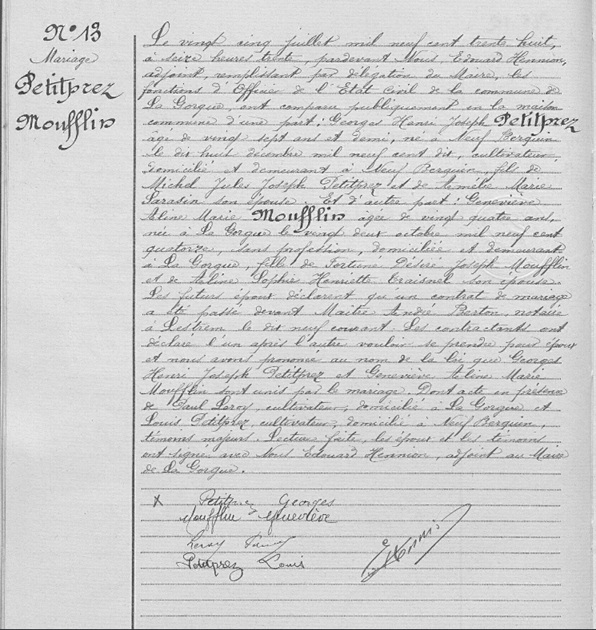 N° 13
Mariage
Petitprez
Moufflin
Le vingt cinq juillet mil neuf cent trente huit,
à seize heures trente, pardevant Nous, Edouard Hennion,
adjoint, remplissant par délégation du Maire, les
fonctions d'Officier de l'Etat Civil de la commune de
La Gorgue, ont comparu publiquement en la maison
commune d'une part: Georges Henri Joseph Petitprez
âgé de vingt sept ans et demi, né à Neuf Berquin
le dix huit décembre mil neuf cent dix, cultivateur,
domicilié et demeurant à Neuf Berquin, fils de
Michel Jules Joseph Petitprez et de Marie
son épouse. Et d'autre part: Geneviève
Aline Marie Moufflin âgée de vingt quatre ans,
née à La Gorgue le vingt deux octobre mil neuf cent
quatorze, sans profession, domiciliée et demeurant
à La Gorgue, fille de Fortuné Désiré Joseph Moufflin
et de Aline Sophie Henriette son épouse.
Les futurs époux déclarent qu'un contrat de mariage
a été passé devant Maître André Berton, notaire
à Lestrem le dix neuf courant. Les contractants ont
déclaré l'un après l'autre vouloir se prendre pour époux
et nous avons prononcé au nom de la loi que Georges
Henri Joseph Petitprez et Geneviève Aline Marie
Moufflin sont unis par le mariage. Dont acte en présence
de Paul Leroy, cultivateur, domicilié à La Gorgue et
Louis Petitprez, cultivateur, domicilié à Neuf Berquin,
témoins majeurs. Lecture faite, les époux et les témoins
ont signé avec Nous Edouard Hennion, adjoint au Maire
de La Gorgue.
X Petitprez Georges
Moufflin Geneviève
Leroy
Petitprez Louis